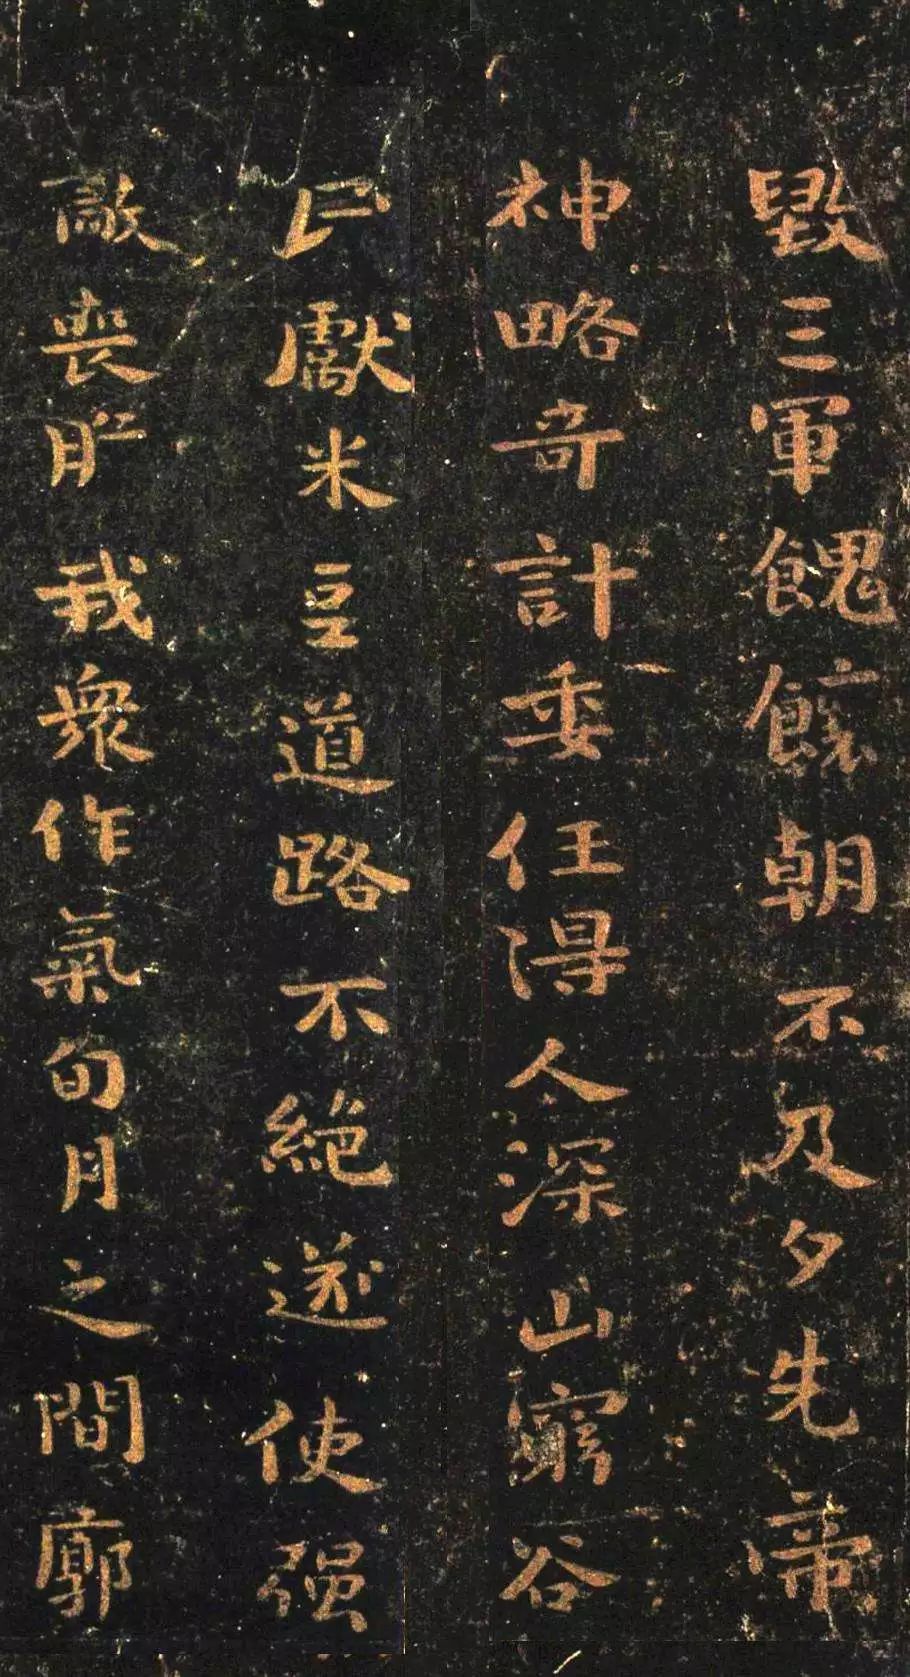 毀三軍餽饟朝不及夕先帝
神略奇計委任得人深山窮谷
民獻米豆道路不絕遂使强
敵喪膽我衆作氣旬月之間廓